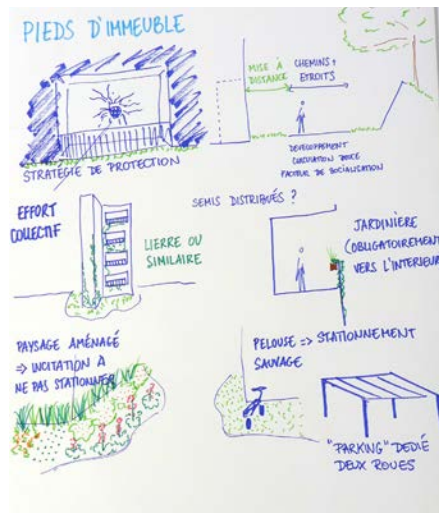 PIEDS D'IMMEUBLE
MISE À
DISTANCE
CHEMINS +
ETROITS
DEVELOPPEMENT
CIRCULATION DOUCE
FACTEUR DE SOCIALISATION
STRATÉGIE DE PROTECTION
EFFORT
COLLECTIF
LIERRE OU
SIMILAIRE
SEMIS DISTRIBUÉS ?
JARDINIÈRE
(OBLIGATOIREMENT
VERS L'INTERIEUR
PAYSAGE AMÉNAGÉ
=> INCITATION A
NE PAS STATIONNER
PELOUSE => STATIONNEMENT
SAUVAGE
"PARKING" DEDIÉ
DEUX ROUES